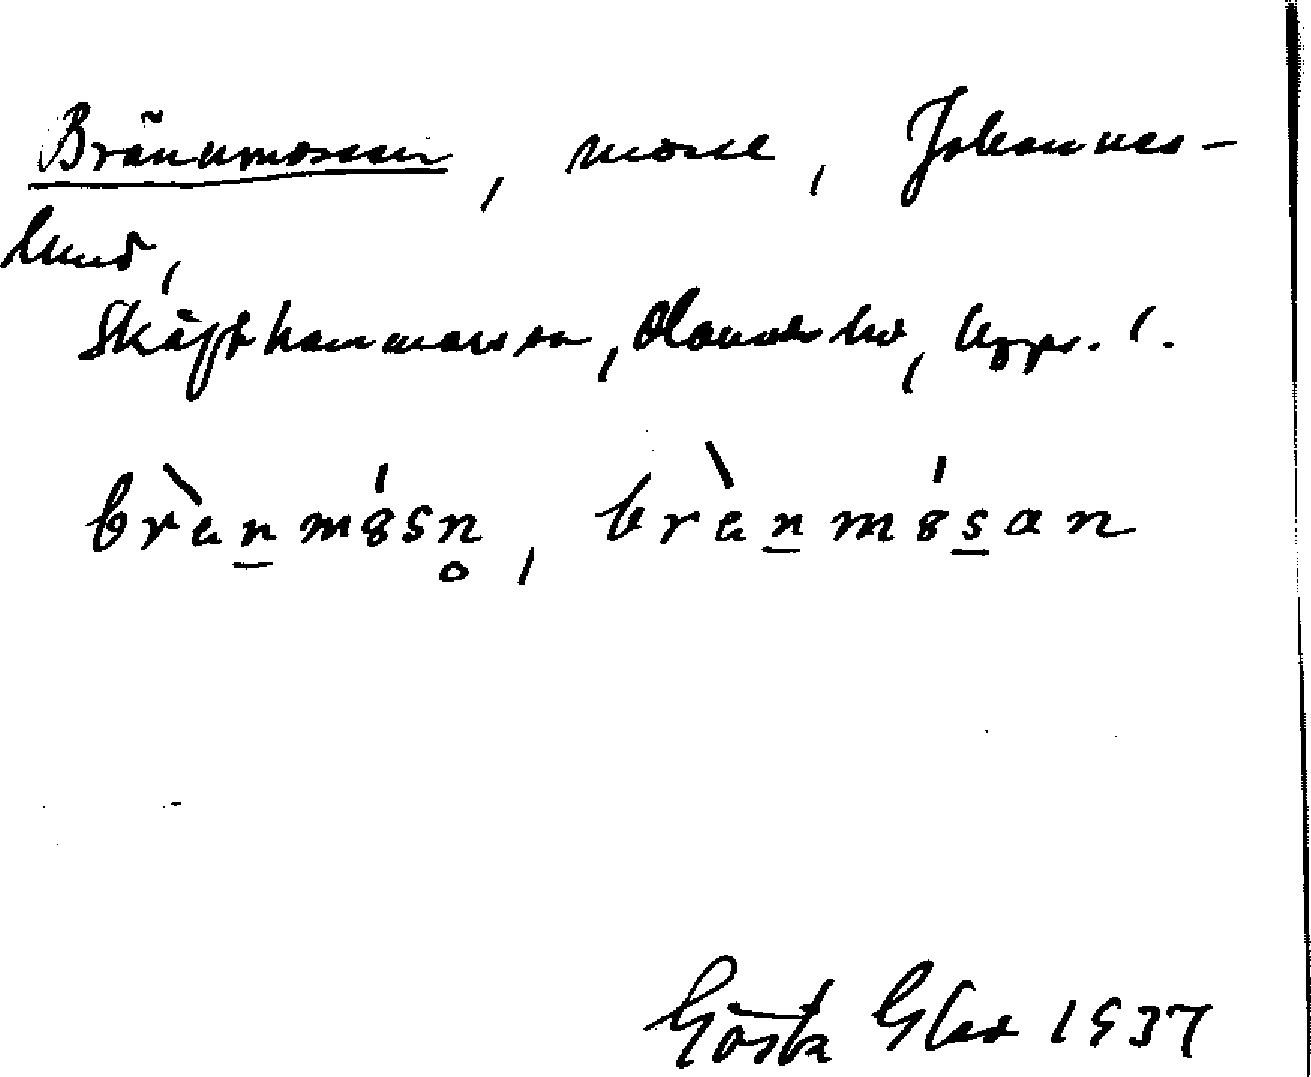 Brännmossen, mosse, Johannes-
lund,
Skäfthammars sn, Olands hd, Upps. l.
brànmósn, brànmósan
Gösta Glas 1937